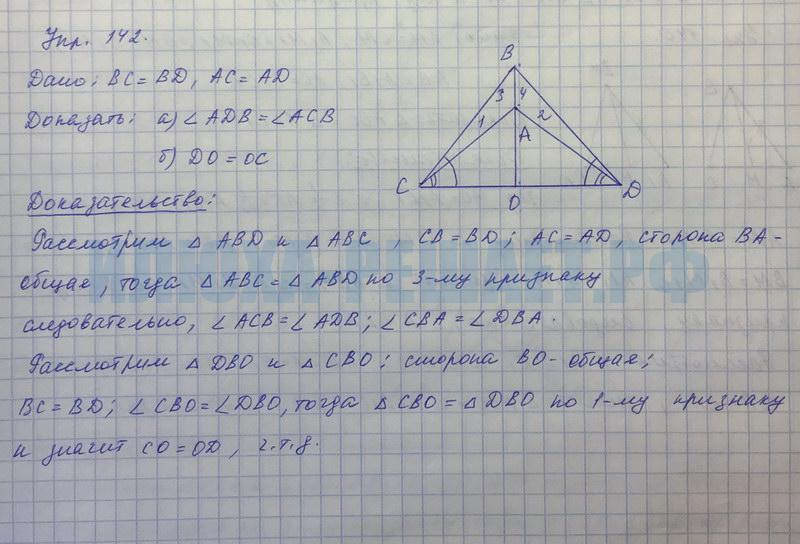 Упр. 142.
Дано: BC = BD, AC = AD
Доказать: а) ∠ADB = ∠ACB
б) DO = OC
Доказательство:
Рассмотрим △ ABD и △ ABC , CB = BD; AC = AD, сторона BA -
общая, тогда △ ABC = △ ABD по 3-му признаку
следовательно, ∠ACB = ∠ADB; ∠CBA = ∠DBA.
Рассмотрим △ DBO и △ CBO; сторона BO - общая;
BC = BD; ∠CBO = ∠DBO, тогда △ CBO = △ DBO по 1-му признаку
и значит CO = OD, ч.т.д.
B
3 4
1 2
A
C D
O